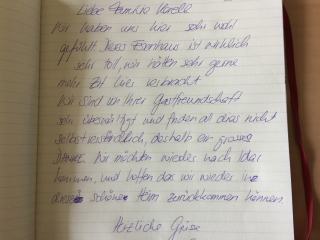 Liebe Familia
Wir haben uns hier sehr wohl
gefühlt. Ihres Ferienhaus ist wirklich
sehr toll, wir hätten sehr gerne
mehr Zeit hier verbracht
Wir sind von Ihrer Gastfreundschaft
sehr überwältigt und finden all dies nicht
selbstverständlich, deshalb ein grosses
Danke. Wir möchten wieder nach
kommen, und hoffen das wir wieder in
dieses schöne Heim zurückkommen können.
Herzliche Grüsse